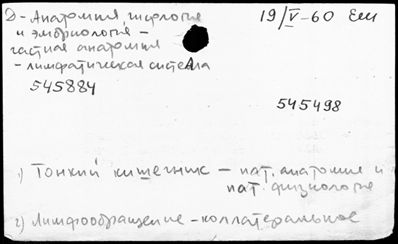 Д - Анатомия, гистология 19/V-60 Еш
и эмбриология -
частная анатомия
- лимфатическая система
545884
545498
1) Тонкий кишечник - пат. анатомия и
пат. физиология
2) Лимфообращение - коллатеральное